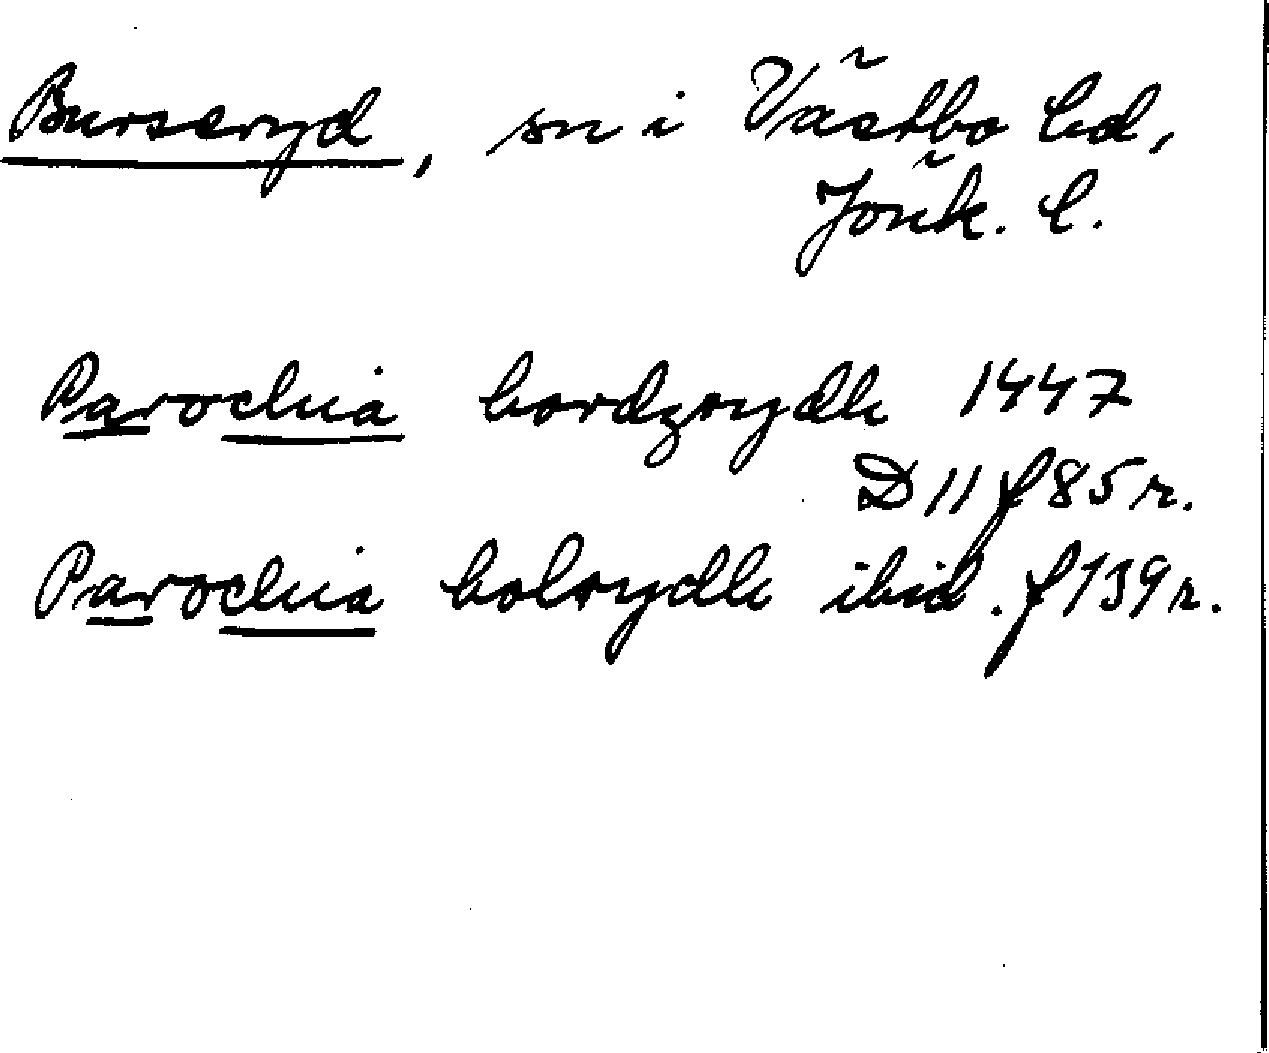 Burseryd, sn i Västbo hd,
Jönk. l.
Parochia bordzrydh 1447
D 11 f 85 r.
Parochia bolrydh ibid. f 139 r.